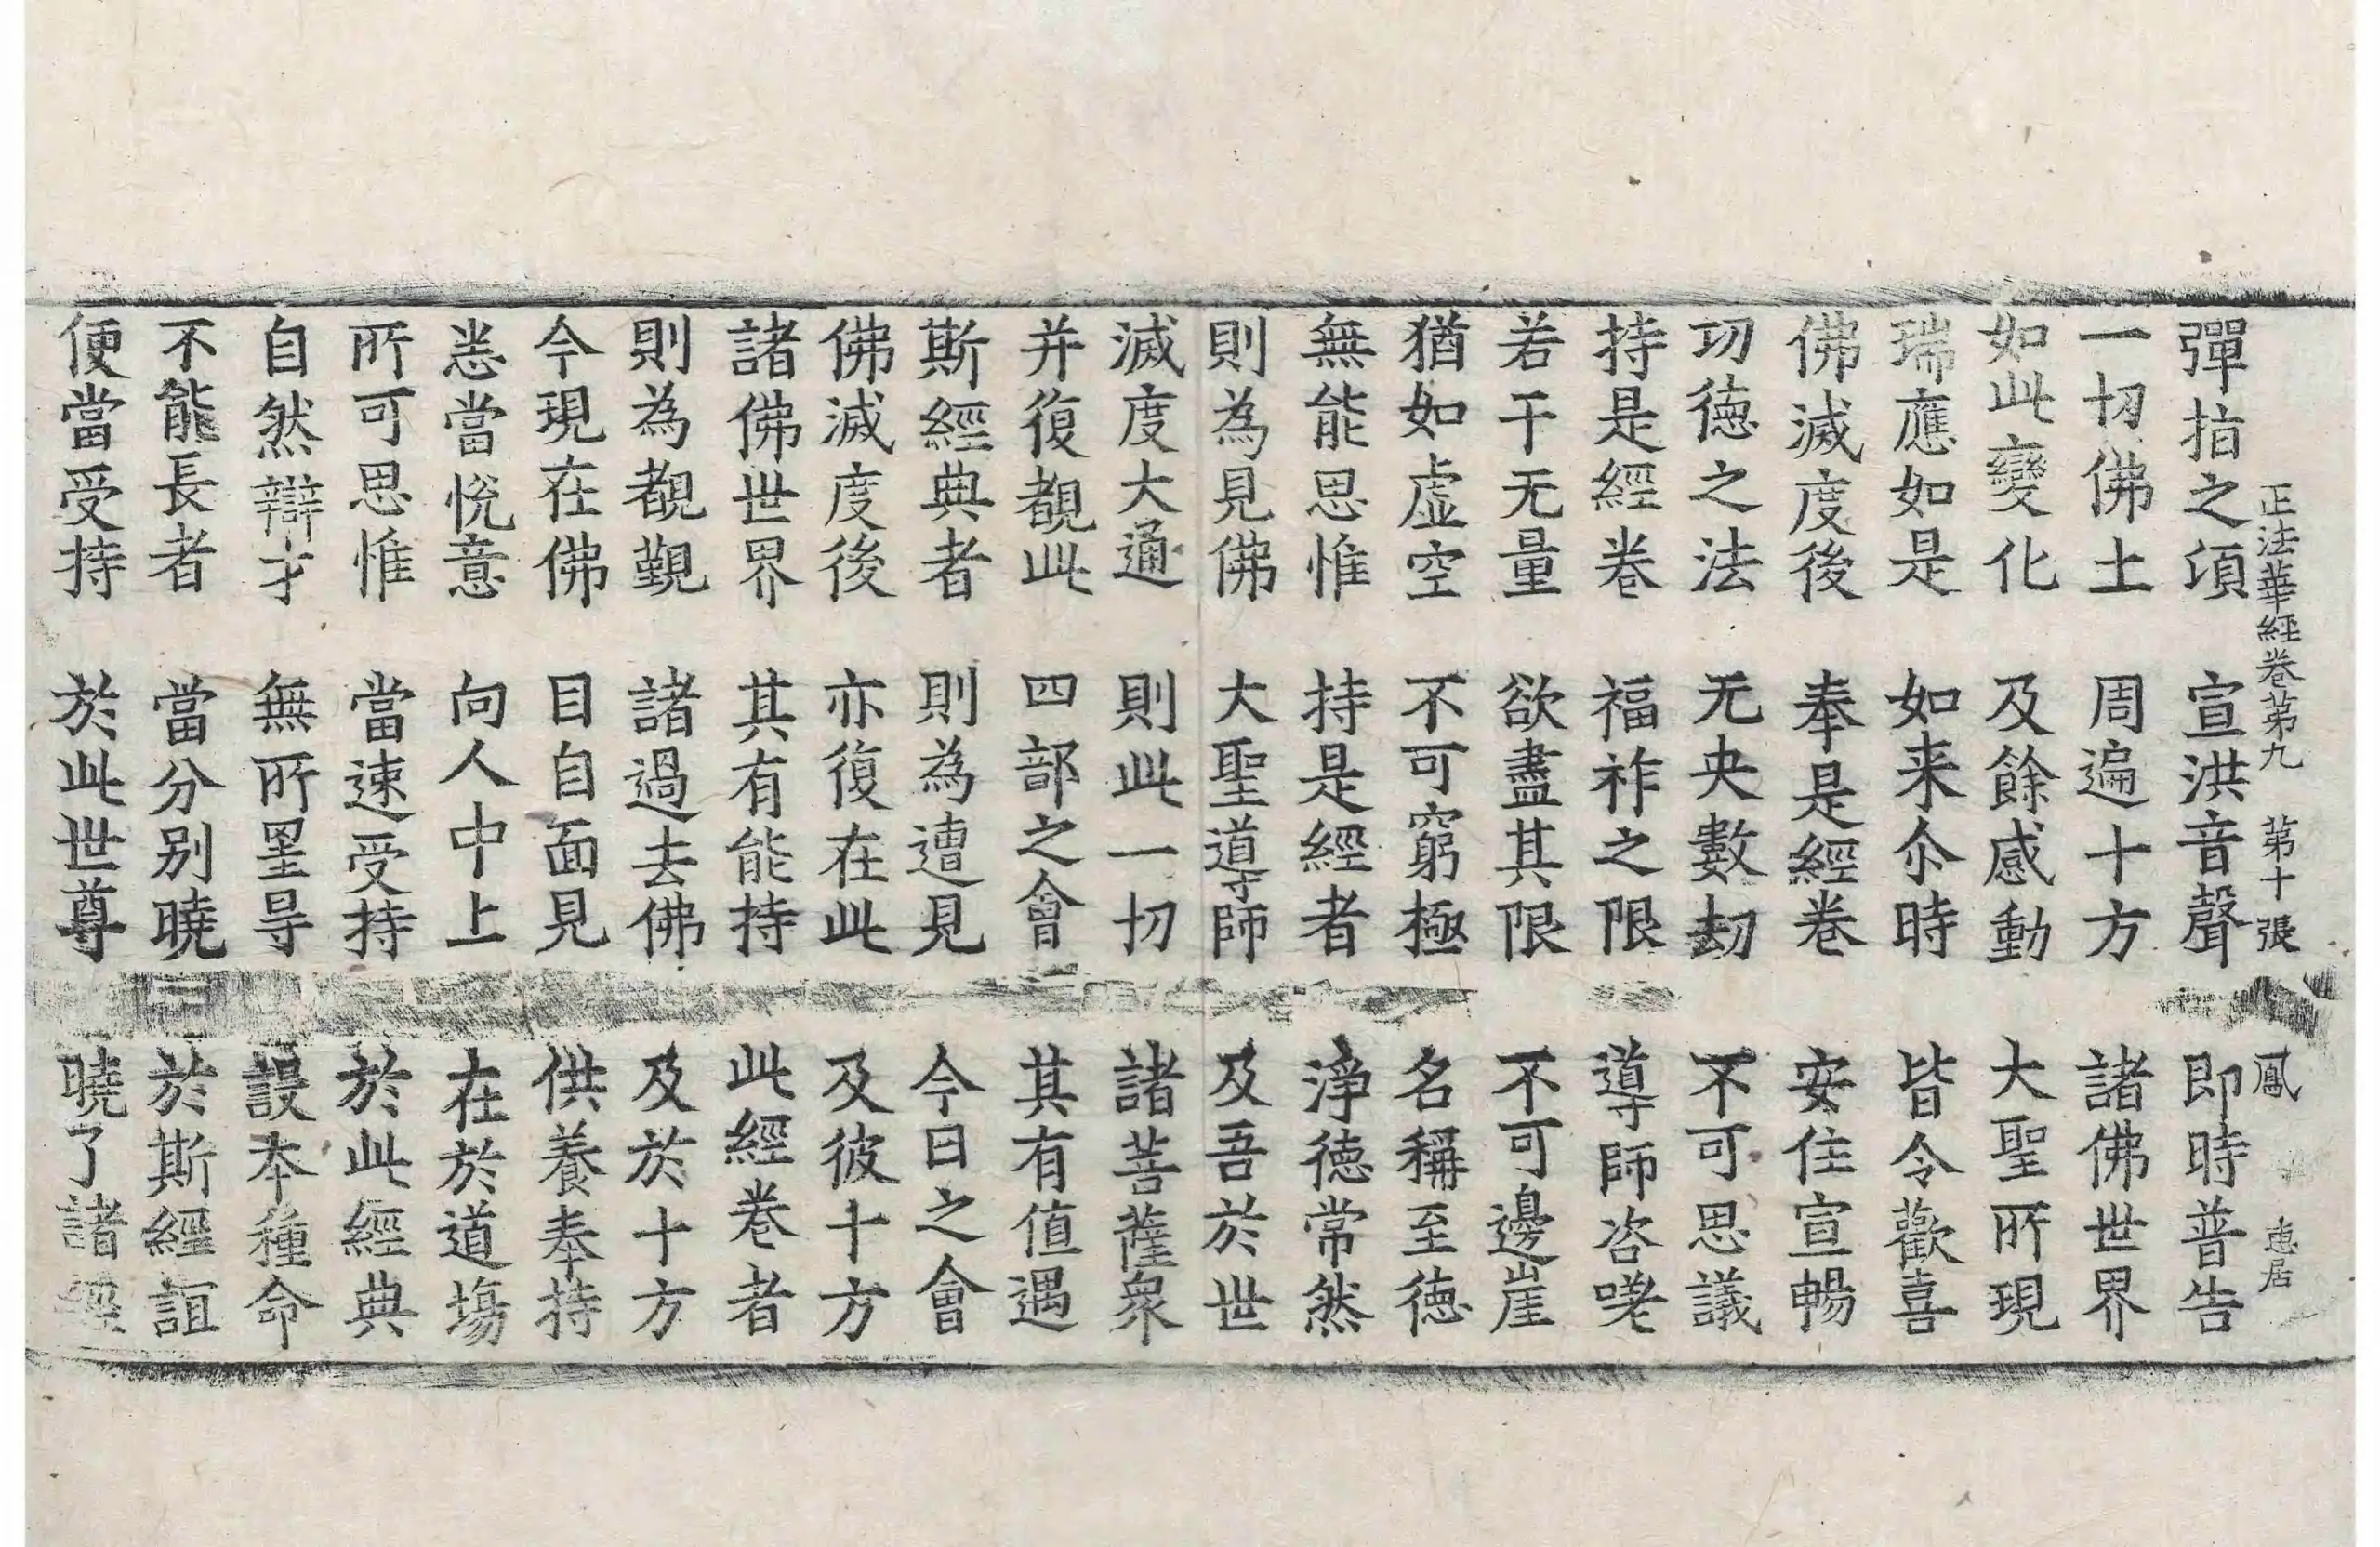 正法華經卷第九　第十張　鳳　惠居
彈指之頃　宣洪音聲　即時普告
一切佛土　周遍十方　諸佛世界
如此變化　及餘感動　大聖所現
瑞應如是　如来尒時　皆令歡喜
佛滅度後　奉是經卷　安住宣暢
功德之法　无央數劫　不可思議
持是經卷　福祚之限　導師咨嗟
若干无量　欲盡其限　不可邊崖
猶如虛空　不可窮極　名稱至德
無能思惟　持是經者　淨德常然
則為見佛　大聖導師　及吾於世
滅度大通　則此一切　諸菩薩衆
并復覩此　四部之會　其有值遇
斯經典者　則為遭見　今日之會
佛滅度後　亦復在此　及彼十方
諸佛世界　其有能持　此經卷者
則為覩覲　諸過去佛　及於十方
今現在佛　目自面見　供養奉持
悉當悅意　向人中上　在於道場
所可思惟　當速受持　於此經典
自然辯才　無所罣㝵　設本種命
不能長者　當分別曉　於斯經誼
便當受持　於此世尊　曉了諸經